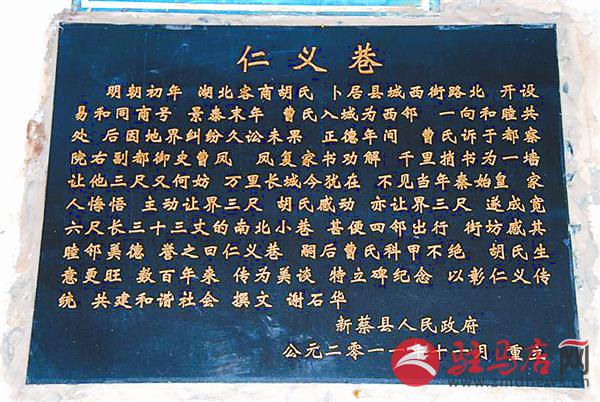 仁义巷
明朝初年 湖北客商胡氏 卜居县城西街路北 开设
易和同商号 景泰末年 曹氏入城为西邻 一向和睦共
处 后因地界纠纷久讼未果 正德年间 曹氏诉于都察
院右副都御史曹凤 凤复家书劝解 千里捎书为一墙
让他三尺又何妨 万里长城今犹在 不见当年秦始皇 家
人悔悟 主动让界三尺 胡氏感动 亦让界三尺 遂成宽
六尺长三十三丈的南北小巷 甚便四邻出行 街坊感其
睦邻美德 誉之曰仁义巷 嗣后曹氏科甲不绝 胡氏生
意更旺 数百年来 传为美谈 特立碑纪念 以彰仁义传
统 共建和谐社会 撰文 谢石华
新蔡县人民政府
公元二零一一年十 月 重立
驻马店网
www.zmdnews.cn